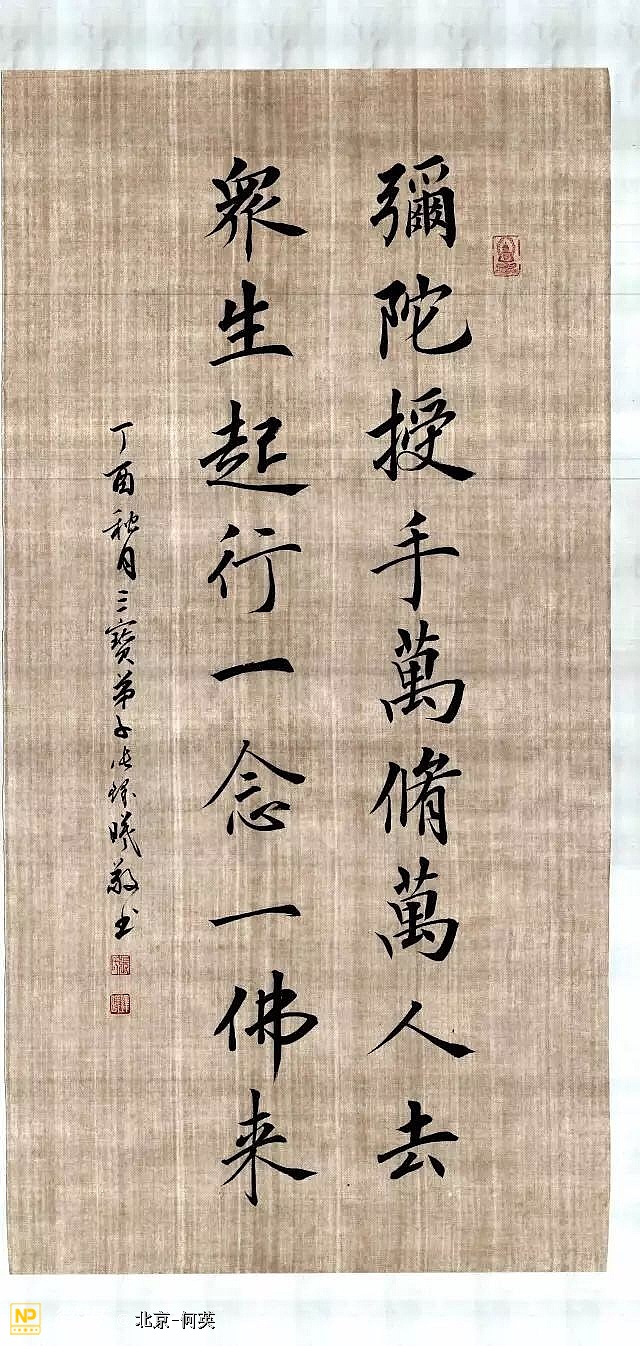 彌陀授手萬脩萬人去
眾生起行一念一佛来
丁酉秋月三寶弟子張錦曦敬书
NP
北京-何英